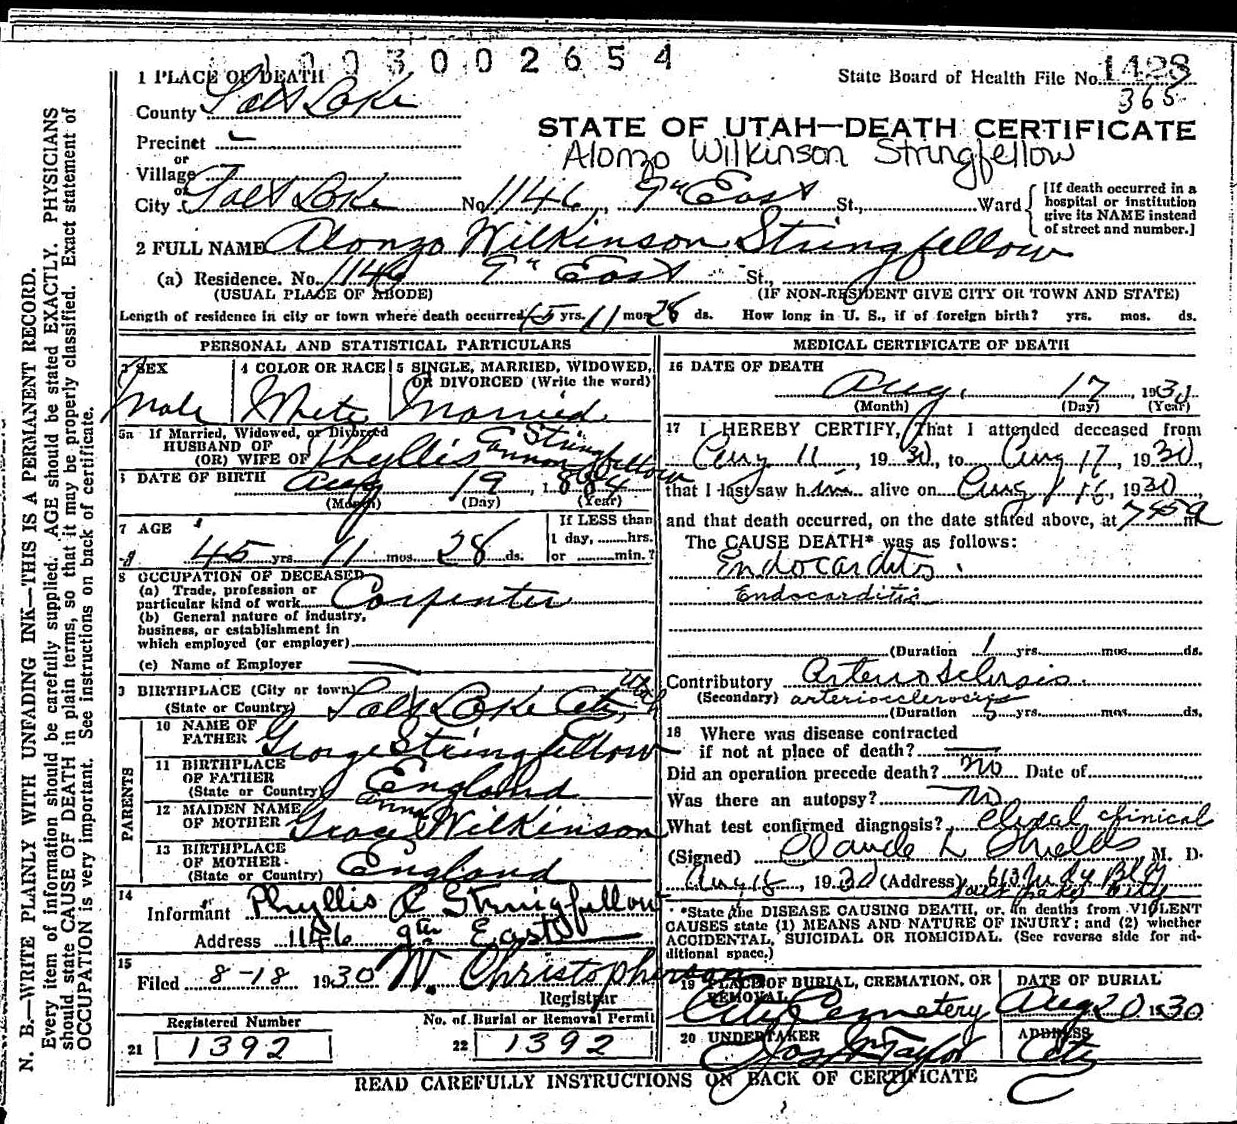 1003002654
1 PLACE OF DEATH
State Board of Health File No. 1428
365
County Salt Lake
STATE OF UTAH—DEATH CERTIFICATE
Precinct
or
Alonzo Wilkinson Stringfellow
Village
or
City Salt Lake No. 1146, 9th East St., Ward
[If death occurred in a hospital or institution give its NAME instead of street and number.]
2 FULL NAME Alonzo Wilkinson Stringfellow
(a) Residence. No. 1146 9th East St.,
(USUAL PLACE OF ABODE) (IF NON-RESIDENT GIVE CITY OR TOWN AND STATE)
Length of residence in city or town where death occurred 45 yrs. 11 mos. 28 ds. How long in U. S., if of foreign birth? yrs. mos. ds.
PERSONAL AND STATISTICAL PARTICULARS
3 SEX
Male
4 COLOR OR RACE
White
5 SINGLE, MARRIED, WIDOWED,
OR DIVORCED (Write the word)
Married
5a If Married, Widowed, or Divorced
HUSBAND OF
(OR) WIFE OF Phyllis Cannon Stringfellow
6 DATE OF BIRTH Aug 19, 1884
(Month) (Day) (Year)
7 AGE
45 yrs. 11 mos. 28 ds.
If LESS than
1 day, hrs.
or min.?
8 OCCUPATION OF DECEASED
(a) Trade, profession or
particular kind of work Carpenter
(b) General nature of industry,
business, or establishment in
which employed (or employer)
(c) Name of Employer
9 BIRTHPLACE (City or town)
(State or Country) Salt Lake City, Utah
PARENTS
10 NAME OF
FATHER George Stringfellow
11 BIRTHPLACE
OF FATHER
(State or Country) England
12 MAIDEN NAME
OF MOTHER Grace Anna Wilkinson
13 BIRTHPLACE
OF MOTHER
(State or Country) England
14
Informant Phyllis C Stringfellow
Address 1146 9th East
15
Filed 8-18 1930 W. Christopherson
Registrar
Registered Number
21 1392
No. of Burial or Removal Permit
22 1392
MEDICAL CERTIFICATE OF DEATH
16 DATE OF DEATH
Aug. 17, 1930
(Month) (Day) (Year)
17 I HEREBY CERTIFY, That I attended deceased from
Aug 11, 1930, to Aug 17, 1930,
that I last saw him alive on Aug 16, 1930,
and that death occurred, on the date stated above, at 745a m
The CAUSE DEATH* was as follows:
Endocarditis.
Endocarditis
(Duration 1 yrs. mos. ds.
Contributory Arterio Sclersis.
(Secondary) arteriosclerosis
(Duration 5 yrs. mos. ds.
18 Where was disease contracted
if not at place of death?
Did an operation precede death? no Date of
Was there an autopsy? no
What test confirmed diagnosis? clinical
(Signed) Claude L Shields M. D.
Aug 18, 1930 (Address) 613 Judge Bldg
Salt Lake City
*State the DISEASE CAUSING DEATH, or, in deaths from VIOLENT
CAUSES state (1) MEANS AND NATURE OF INJURY; and (2) whether
ACCIDENTAL, SUICIDAL OR HOMICIDAL. (See reverse side for ad-
ditional space.)
19 PLACE OF BURIAL, CREMATION, OR
REMOVAL
City Cemetery
DATE OF BURIAL
Aug 20 1930
20 UNDERTAKER
Jos Wm Taylor
ADDRESS
City
READ CAREFULLY INSTRUCTIONS ON BACK OF CERTIFICATE
N. B.—WRITE PLAINLY WITH UNFADING INK—THIS IS A PERMANENT RECORD.
Every item of information should be carefully supplied. AGE should be stated EXACTLY. PHYSICIANS
should state CAUSE OF DEATH in plain terms, so that it may be properly classified. Exact statement of
OCCUPATION is very important. See instructions on back of certificate.